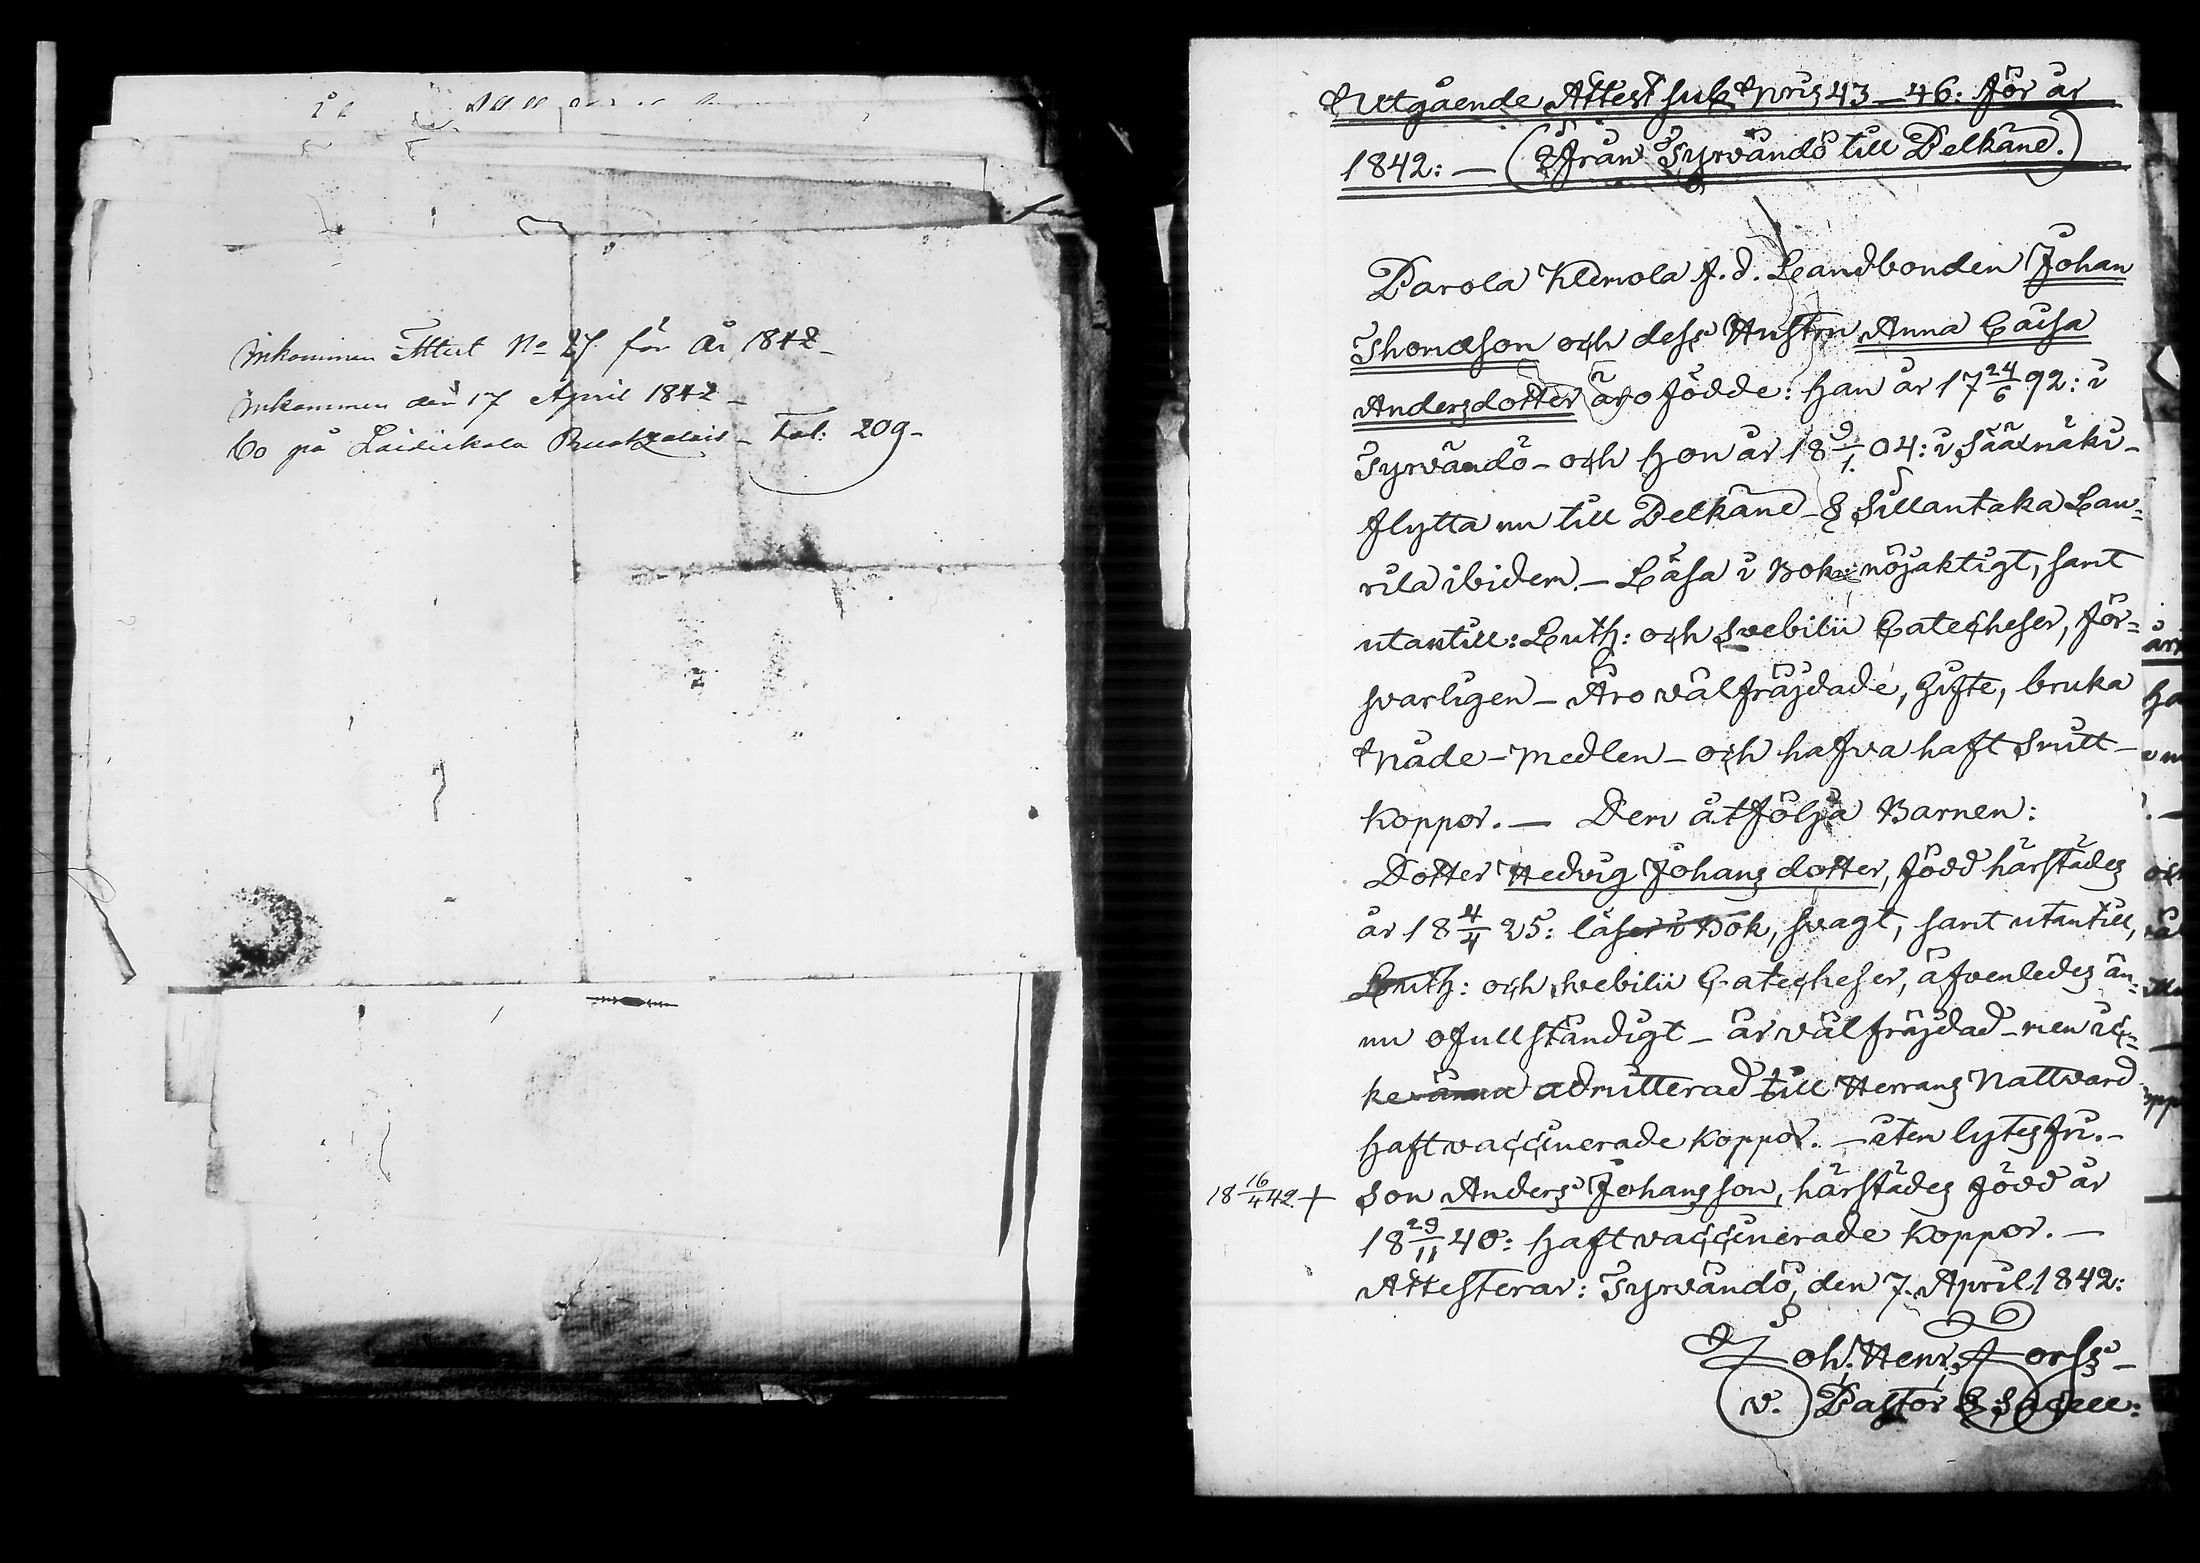 Inkommen Attest No 27 för År 1842 –
Inkommen den 17 April 1842 –
bo på Laidickala Rusthåll – Fol: 209 –
Utgående Attest sub Nris 43 – 46: för år
1842: – (Ifrån Tyrvändö till Pelkäne.)
Parola Klemola f. d. Landbonden Johan
Thomasson och dess Hustru Anna Caisa
Andersdotter äro födde: han år 17 24/6 92: i
Tyrvändö – och hon år 18 9/1 04: i Sääxmäki –
flytta nu till Pelkäne – & Sillantaka Lau=
rila ibidem. – Läsa i Bok nöjaktigt, samt
utantill: Luth: och Svebilii Catecheser, för=
svarligen – Äro välfräjdade, gifte, bruka
Nåde-Medlen – och hafva haft Smitt-
koppor. – Dem åtfölja Barnen:
Dotter Hedvig Johansdotter, född härstädes
år 18 4/4 25: läser i Bok, svagt, samt utantill,
Luth: och Svebilii Catecheser, äfvenledes än=
nu ofullständigt – är välfräjdad – men ic=
ke ännu admitterad till Herrans Nattvard
haft vaccinerade koppor. – item lytesfri. –
18 16/4 42. + Son Anders Johansson, härstädes född år
18 29/11 40: haft vaccinerade koppor. –
Attesterar: Tyrvändö, den 7. April 1842:
Joh. Henr. Forss –
v. Pastor & Sacell: